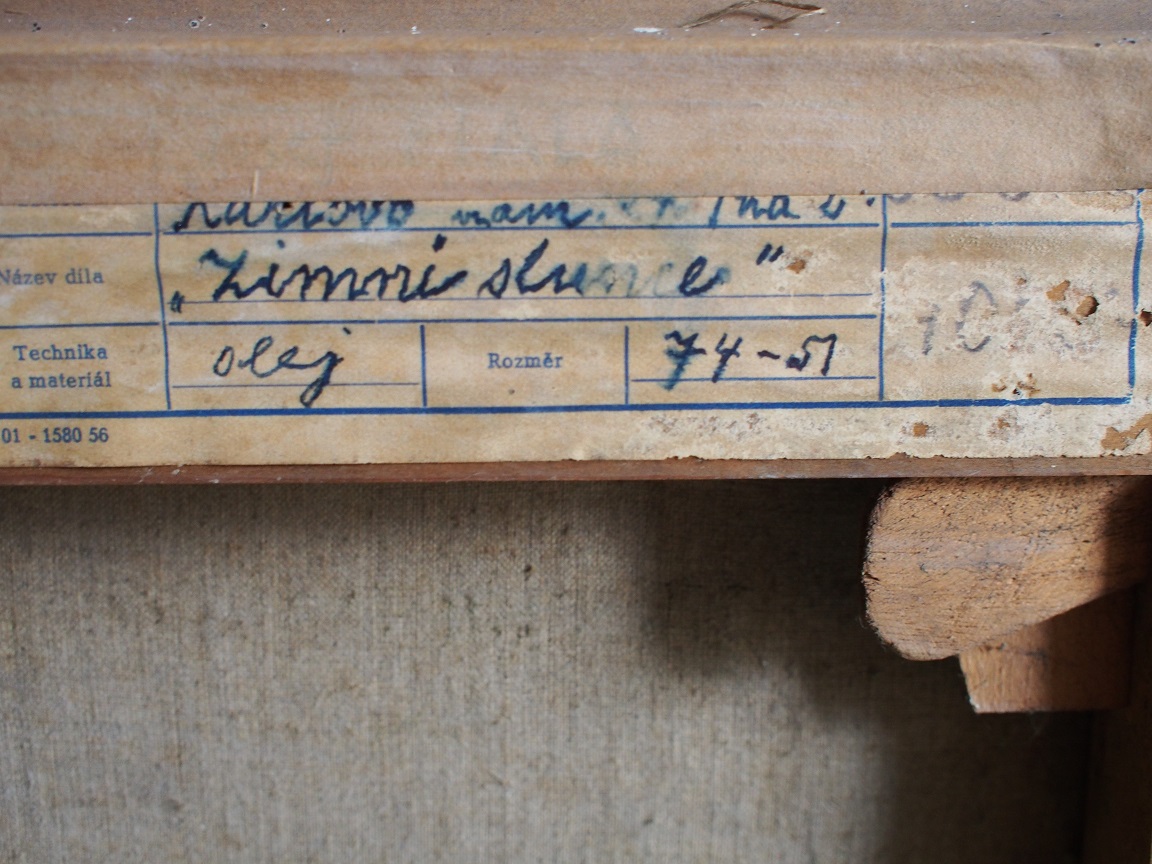 Karlovo nám.
Název díla „Zimní slunce"
Technika a materiál olej Rozměr 74-51
01 - 1580 56